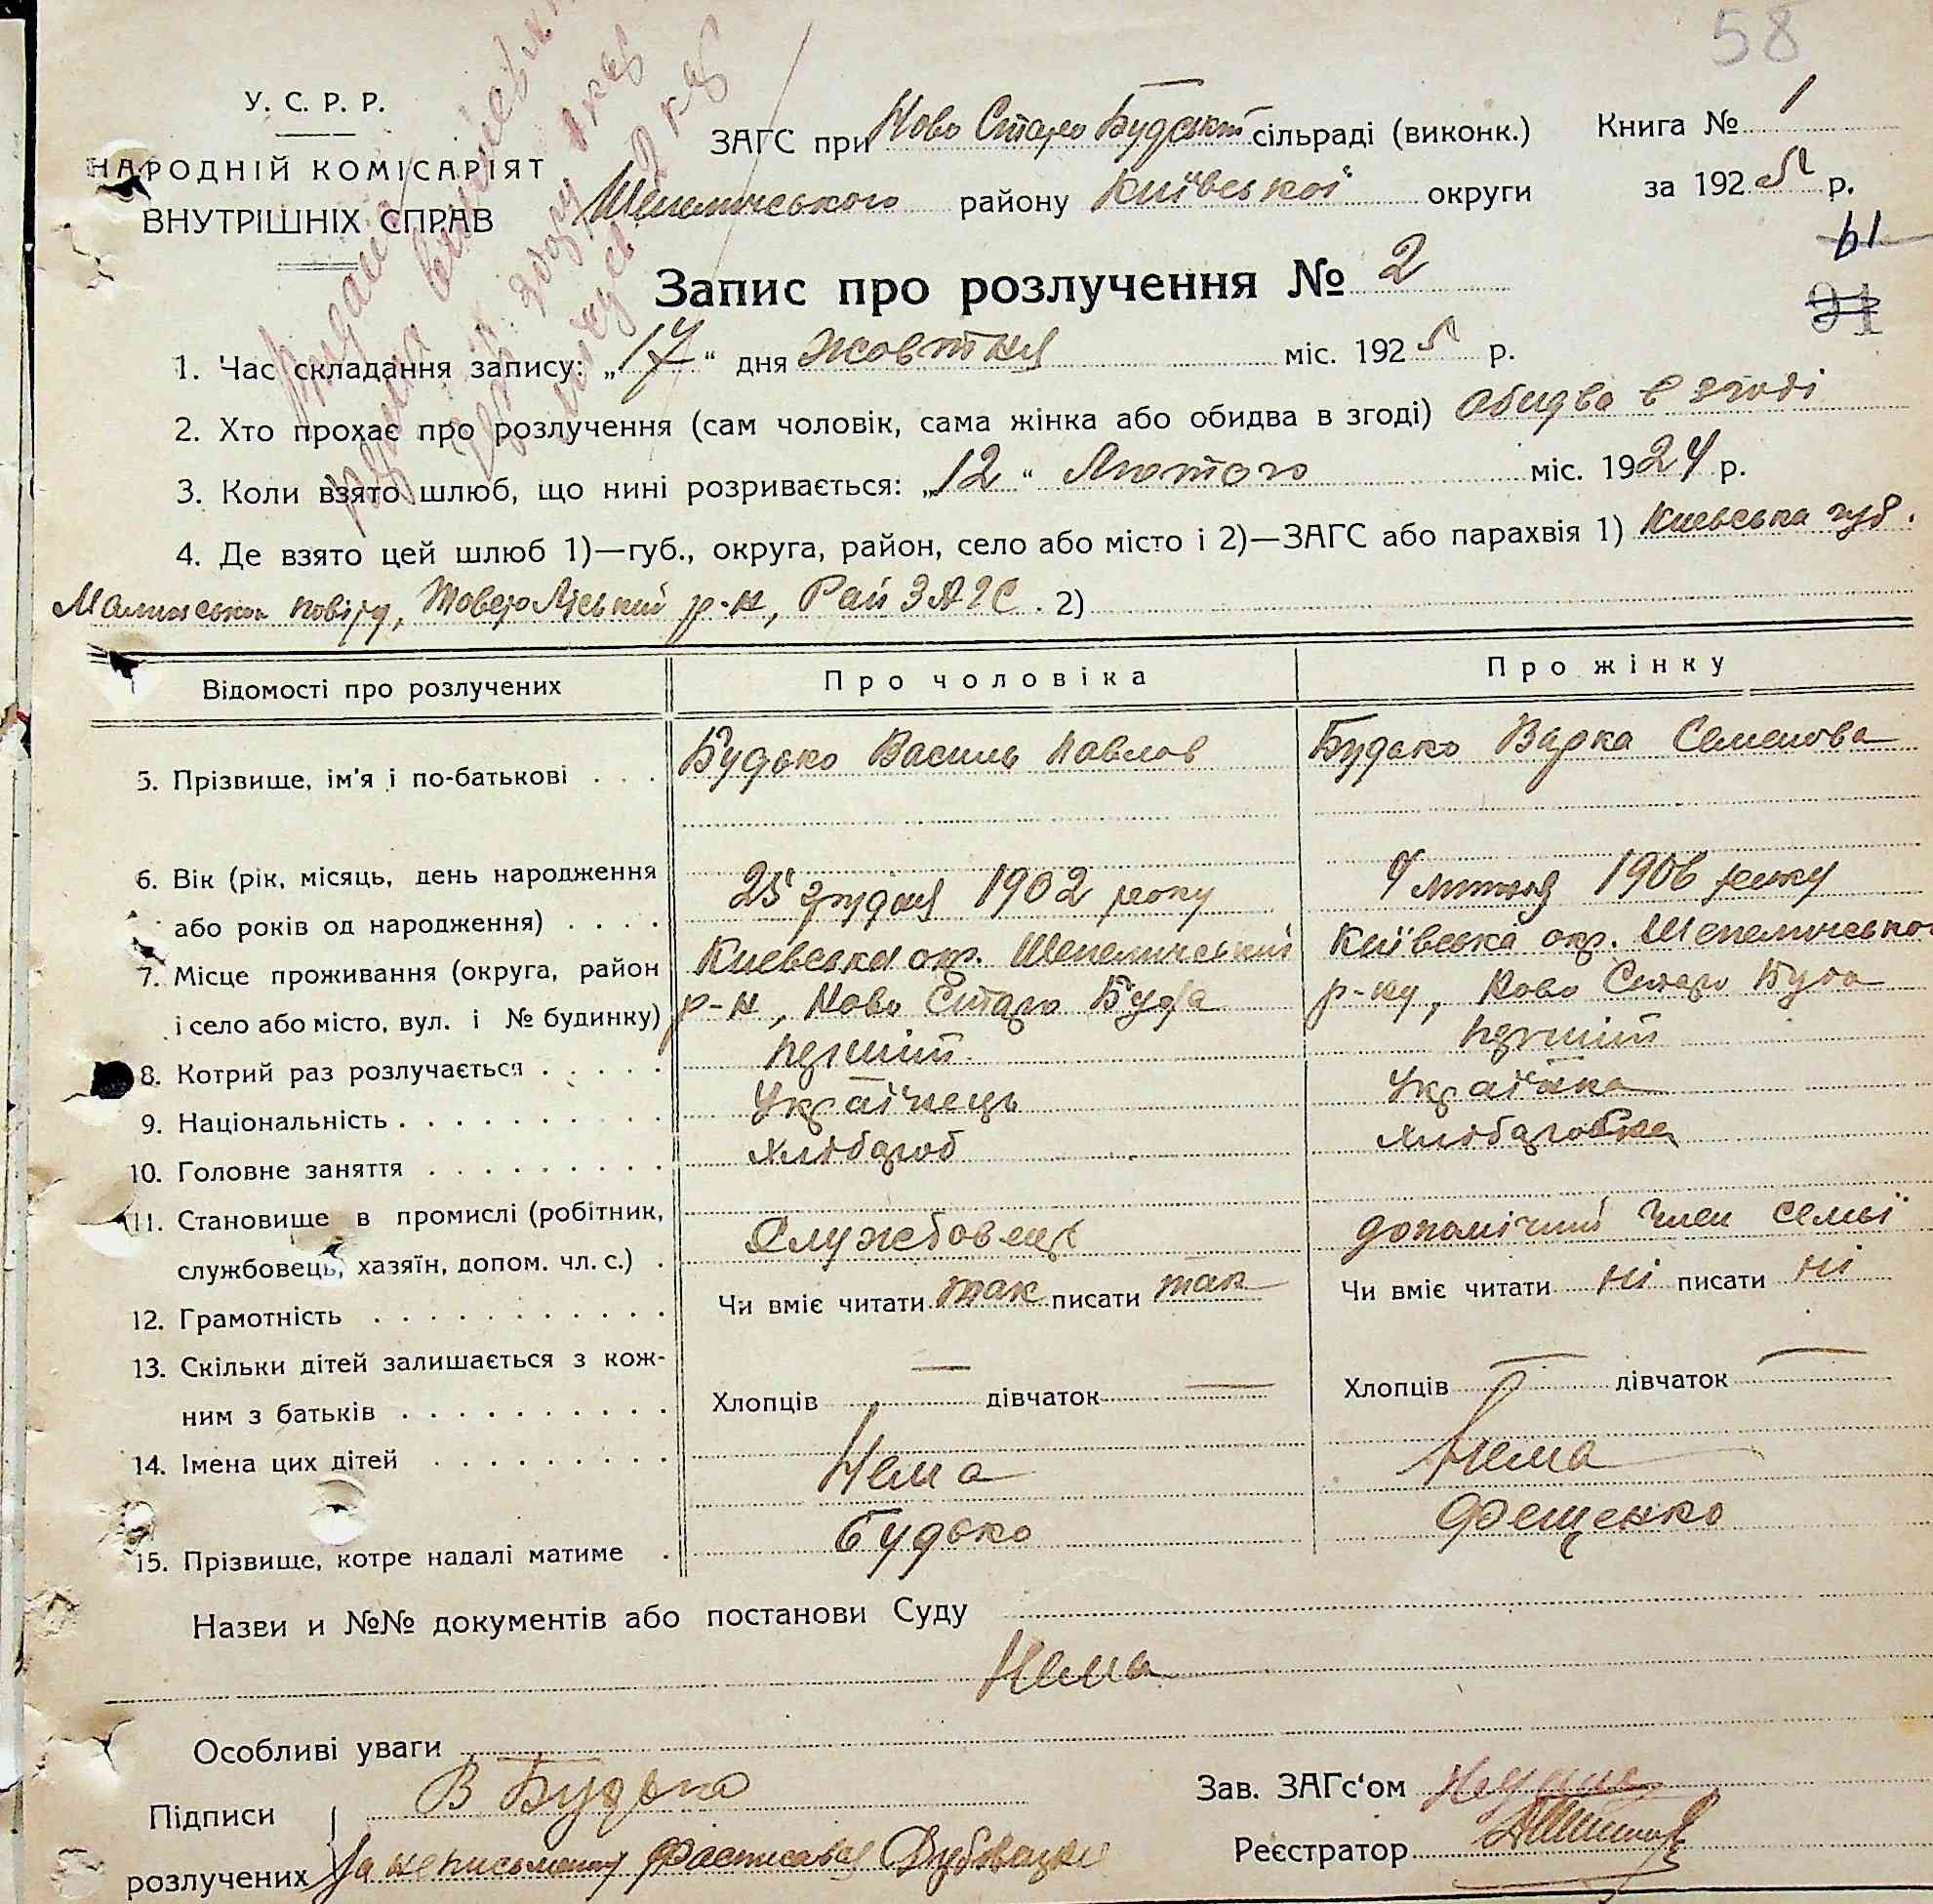 58
У. С. Р. Р.
НАРОДНІЙ КОМІСАРІЯТ
ВНУТРІШНІХ СПРАВ
ЗАГС при Ново Старо Будській сільраді (виконк.)
Шепелицького району Київської округи
Книга № 1
за 1925 р.
61
91
Запис про розлучення № 2
1. Час складання запису: „17“ дня жовтня міс. 1925 р.
2. Хто прохає про розлучення (сам чоловік, сама жінка або обидва в згоді) обидва в згоді
3. Коли взято шлюб, що нині розривається: „12“ Лютого міс. 1924 р.
4. Де взято цей шлюб 1)—губ., округа, район, село або місто і 2)—ЗАГС або парахвія 1) Киевська губ.
повіту, р-н, Рай ЗАГС. 2)
Відомості про розлучених Про чоловіка Про жінку
5. Прізвище, ім'я і по-батькові Будько Василь Павлов Будько Варка Семенова
6. Вік (рік, місяць, день народження
або років од народження) 25 грудня 1902 року 1906 року
7. Місце проживання (округа, район Киевська окр. Шепелицький Київська окр. Шепелицького
і село або місто, вул. і № будинку) р-н, Ново Старо Буда р-ну, Ново Старо Буда
8. Котрий раз розлучається перший перший
9. Національність Українець Українка
10. Головне заняття Хлібароб Хлібаробка
11. Становище в промислі (робітник,
службовець, хазяїн, допом. чл. с.) Службовець допомічний член семьі
12. Грамотність Чи вміє читати так писати так Чи вміє читати ні писати ні
13. Скільки дітей залишається з кож-
ним з батьків Хлопців — дівчаток — Хлопців — дівчаток —
14. Імена цих дітей Нема Нема
15. Прізвище, котре надалі матиме Будько Фещенко
Назви и №№ документів або постанови Суду
Нема
Особливі уваги
Підписи В Будько
розлучених За неписьменну
Зав. ЗАГс'ом
Реєстратор